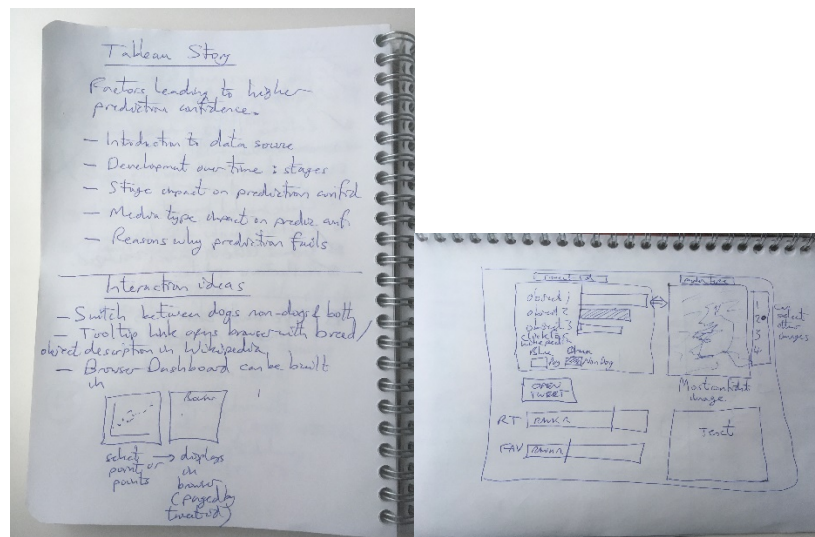 Tableau Story
Factors leading to higher
prediction confidence.
— Introduction to data source
— Development over time : stages
— Stage impact on prediction confid
— Media type impact on predic conf
— Reasons why prediction fails
Interaction ideas
— Switch between dogs non-dogs & both
— Tooltip link opens browser with breed/
object description in Wikipedia
— Browser Dashboard can be built
in
select → displays
points or in
points browser
(paged by
tweet id)
object 1
object 2
object 3
click for
wikiped
Blue
Dog Non Dog
OPEN
TWEET
RT RANK R
FAV RANK R
1
2
3
4
can
select
other
images
Most confident
image
Text